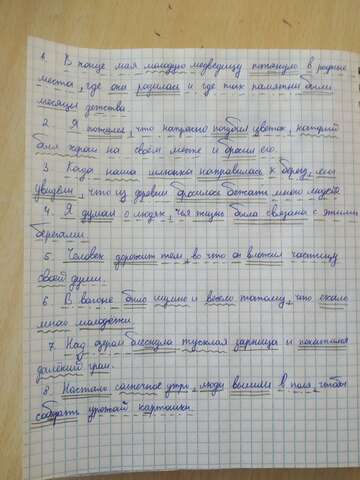 1. В конце мая молодую медведицу потянуло в родные
места, где она родилась и где так памятны были
месяцы детства
2. Я пожалел, что напрасно погубил цветок, который
был хорош на своём месте и бросил его.
3. Когда наша шлюпка направилась к берегу, мы
увидели, что из деревни бросилось бежать много людей
4. Я думал о людях, чья жизнь была связана с этими
берегами.
5. Человек дорожит тем, во что он вложил частицу
своей души.
6. В вагоне было шумно и весело потому, что ехало
много молодежи
7. Над озером блеснула тусклая зарница и покатился
далекий гром.
8. Настало солнечное утро, люди вышли в поля, чтобы
собирать урожай картошки.